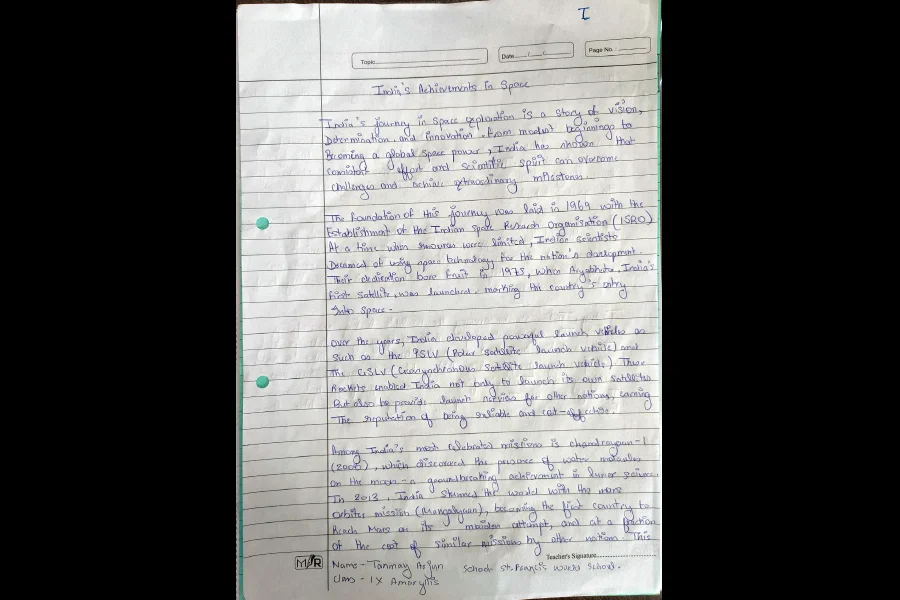 I
Topic
Date
Page No.
India's Achievements In Space
India's journey in space exploration is a story of vision,
Determination and innovation. From modest beginnings to
Becoming a global space power, India has shown that
consistent effort and scientific spirit can overcome
challenges and achieve extraordinary milestones.
The foundation of this journey was laid in 1969 with the
Establishment of the Indian Space Research Organisation (ISRO)
At a time when resources were limited, Indian scientists
Dreamed of using space technology for the nation's development.
Their dedication bore fruit in 1975, when Aryabhata, India's
first satellite, was launched, marking the country's entry
Into space.
Over the years, India developed powerful launch vehicles as
such as the PSLV (Polar satellite launch vehicle) and
The GSLV (Geosynchronous satellite launch vehicle). These
Rockets enabled India not only to launch its own satellites
But also be provide launch for other nations, earning
The reputation of being reliable and cost-effective.
Among India's most celebrated missions is chandrayaan-1
(2008), which discovered the presence of water molecules
on the moon - a groundbreaking achievement in lunar science.
In 2013, India stunned the world with the mars
orbiter mission (Mangalyaan), becoming the first country to
Reach Mars on its maiden attempt, and at a fraction
of the cost of similar missions by other nations. This
Teacher's Signature
Name - Tanmay Arjun School - St. Francis World School.
Class - IX Amaryllis